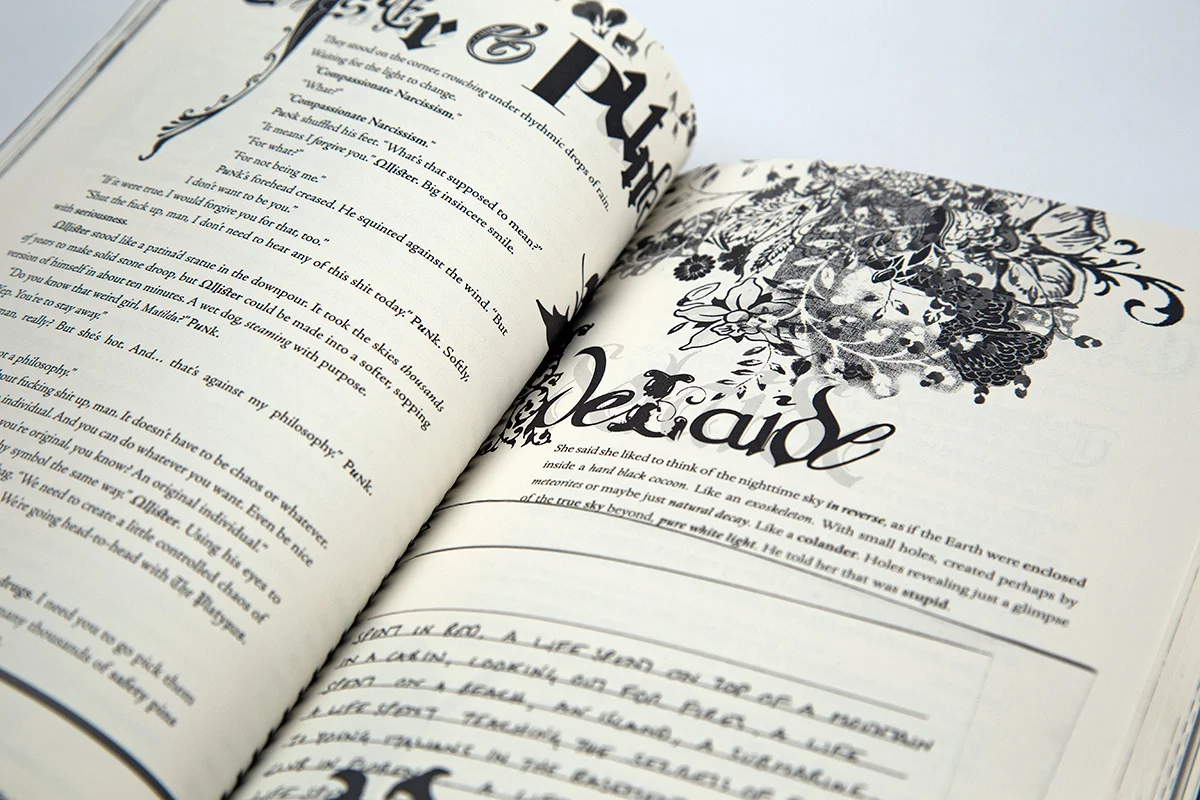 er & Punk
They stood on the corner, crouching under rhythmic drops of rain.
Waiting for the light to change.
"Compassionate Narcissism."
"What?"
"Compassionate Narcissism."
Punk shuffled his feet. "What's that supposed to mean?"
"It means I forgive you." Ollister. Big insincere smile.
"For what?"
"For not being me."
Punk's forehead creased. He squinted against the wind. "But
I don't want to be you."
"If it were true. I would forgive you for that, too."
"Shut the fuck up, man. I don't need to hear any of this shit today." Punk. Softly,
with seriousness.
Ollister stood like a patina'd statue in the downpour. It took the skies thousands
of years to make solid stone droop, but Ollister could be made into a softer, sopping
version of himself in about ten minutes. A wet dog steaming with purpose.
"Do you know that weird girl, Matilda?" Punk.
"Yep. You're to stay away."
man, really? But she's hot. And... that's against my philosophy." Punk.
not a philosophy."
about fucking shit up, man. It doesn't have to be chaos or whatever.
individual. And you can do whatever you want. Even be nice
you're original, you know? An original individual."
symbol the same way." Ollister. Using his eyes to
"We need to create a little controlled chaos of
We're going head-to-head with The Platypus.
drugs. I need you to go pick them
many thousands of safety pins
Adelaide
She said she liked to think of the nighttime sky in reverse, as if the Earth were enclosed
inside a hard black cocoon. Like an exoskeleton. With small holes, created perhaps by
meteorites or maybe just natural decay. Like a colander. Holes revealing just a glimpse
of the true sky beyond, pure white light. He told her that was stupid.
SPENT IN BED, A LIFE SPENT ON TOP OF A MOUNTAIN
IN A CABIN, LOOKING OUT FOR FIRES, A LIFE
SPENT ON A BEACH, AN ISLAND, A SUBMARINE
A LIFE SPENT TEACHING THE SECRETS OF
YOUNG ITALIANS IN THE
CLUB IN
LIFE